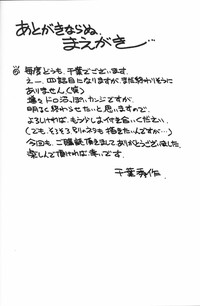 あとがきならぬ、
まえがき…
毎度どうも、千葉でございます。
えー、四話目になりますが、まだ終わりそうに
ありません(笑)
ドロ沼、ぽいカンジですが、
明るく終わらせたいと思いますので、
よろしければ、もう少しお付き合いください。
(でも、そろそろ別のネタも描きたいんですが…)
今回も、ご購読頂きましてありがとうございました。
楽しんで頂ければ幸いです。
千葉秀作